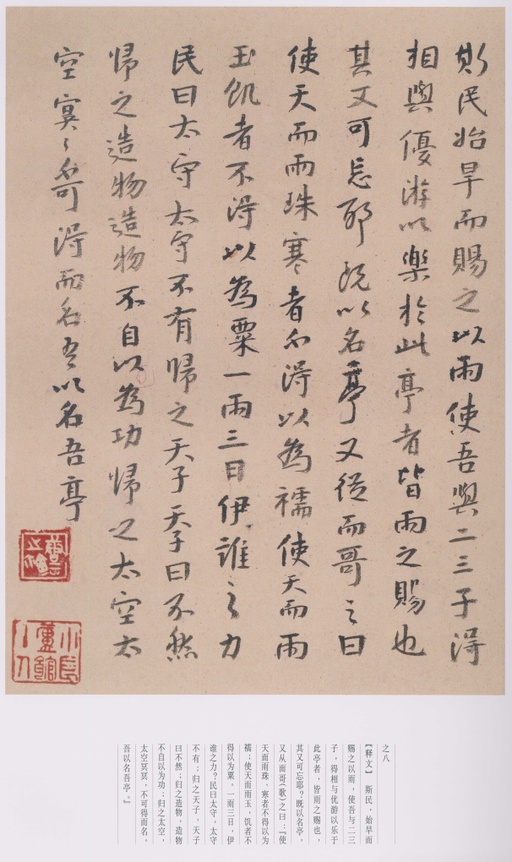 斯民始旱而賜之以雨使吾與二三子得
相與優游以樂於此亭者皆雨之賜也
其又可忘耶既以名亭又從而哥之曰
使天而雨珠寒者不得以為襦使天而雨
玉飢者不得以為粟一雨三日伊誰之力
民曰太守太守不有歸之天子天子曰不然
歸之造物造物不自以為功歸之太空太
空冥〻不可得而名吾以名吾亭
之八
【释文】 斯民，始旱而
赐之以雨，使吾与二三
子，得相与优游以乐于
此亭者，皆雨之赐也，
其又可忘耶？既以名亭，
又从而哥（歌）之曰：『使
天而雨珠，寒者不得以为
襦；使天而雨玉，饥者不
得以为粟。一雨三日，伊
谁之力？民曰太守，太守
不有；归之天子，天子
曰不然；归之造物，造物
不自以为功；归之太空，
太空冥冥，不可得而名，
吾以名吾亭。』